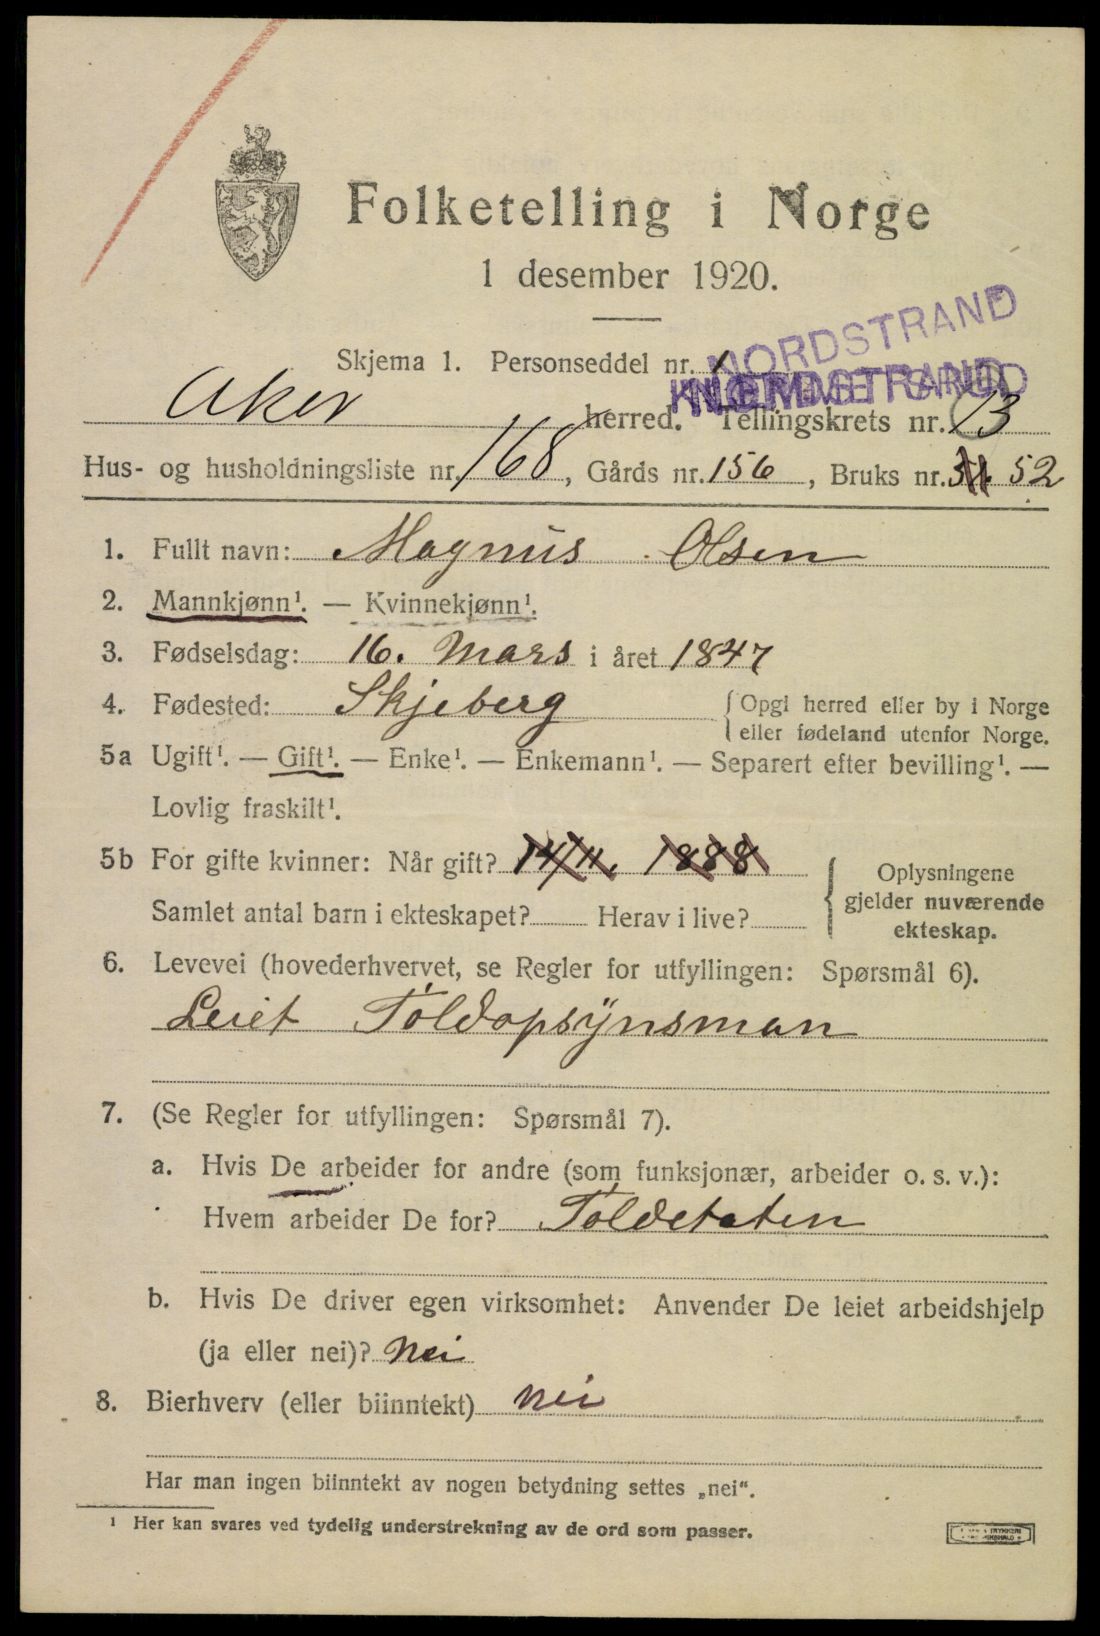 Folketelling i Norge
1 desember 1920.
NORDSTRAND
Skjema 1. Personseddel nr. 1
NORDSTRAND
Aker herred. Tellingskrets nr. 13
Hus- og husholdningsliste nr. 168, Gårds nr. 156, Bruks nr. 52
1. Fullt navn: Magnus Olsen
2. Mannkjønn¹. — Kvinnekjønn¹.
3. Fødselsdag: 16. Mars i året 1847
4. Fødested: Skjeberg { Opgi herred eller by i Norge
eller fødeland utenfor Norge.
5a Ugift¹. — Gift¹. — Enke¹. — Enkemann¹. — Separert efter bevilling¹. —
Lovlig fraskilt¹.
5b For gifte kvinner: Når gift? 14/11. 1888
Samlet antal barn i ekteskapet? Herav i live?
{ Oplysningene
gjelder nuværende
ekteskap.
6. Levevei (hovederhvervet, se Regler for utfyllingen: Spørsmål 6).
Leiet Toldopsynsman
7. (Se Regler for utfyllingen: Spørsmål 7).
a. Hvis De arbeider for andre (som funksjonær, arbeider o. s. v.):
Hvem arbeider De for? Toldetaten
b. Hvis De driver egen virksomhet: Anvender De leiet arbeidshjelp
(ja eller nei)? Nei
8. Bierhverv (eller biinntekt) nei
Har man ingen biinntekt av nogen betydning settes „nei“.
¹ Her kan svares ved tydelig understrekning av de ord som passer.